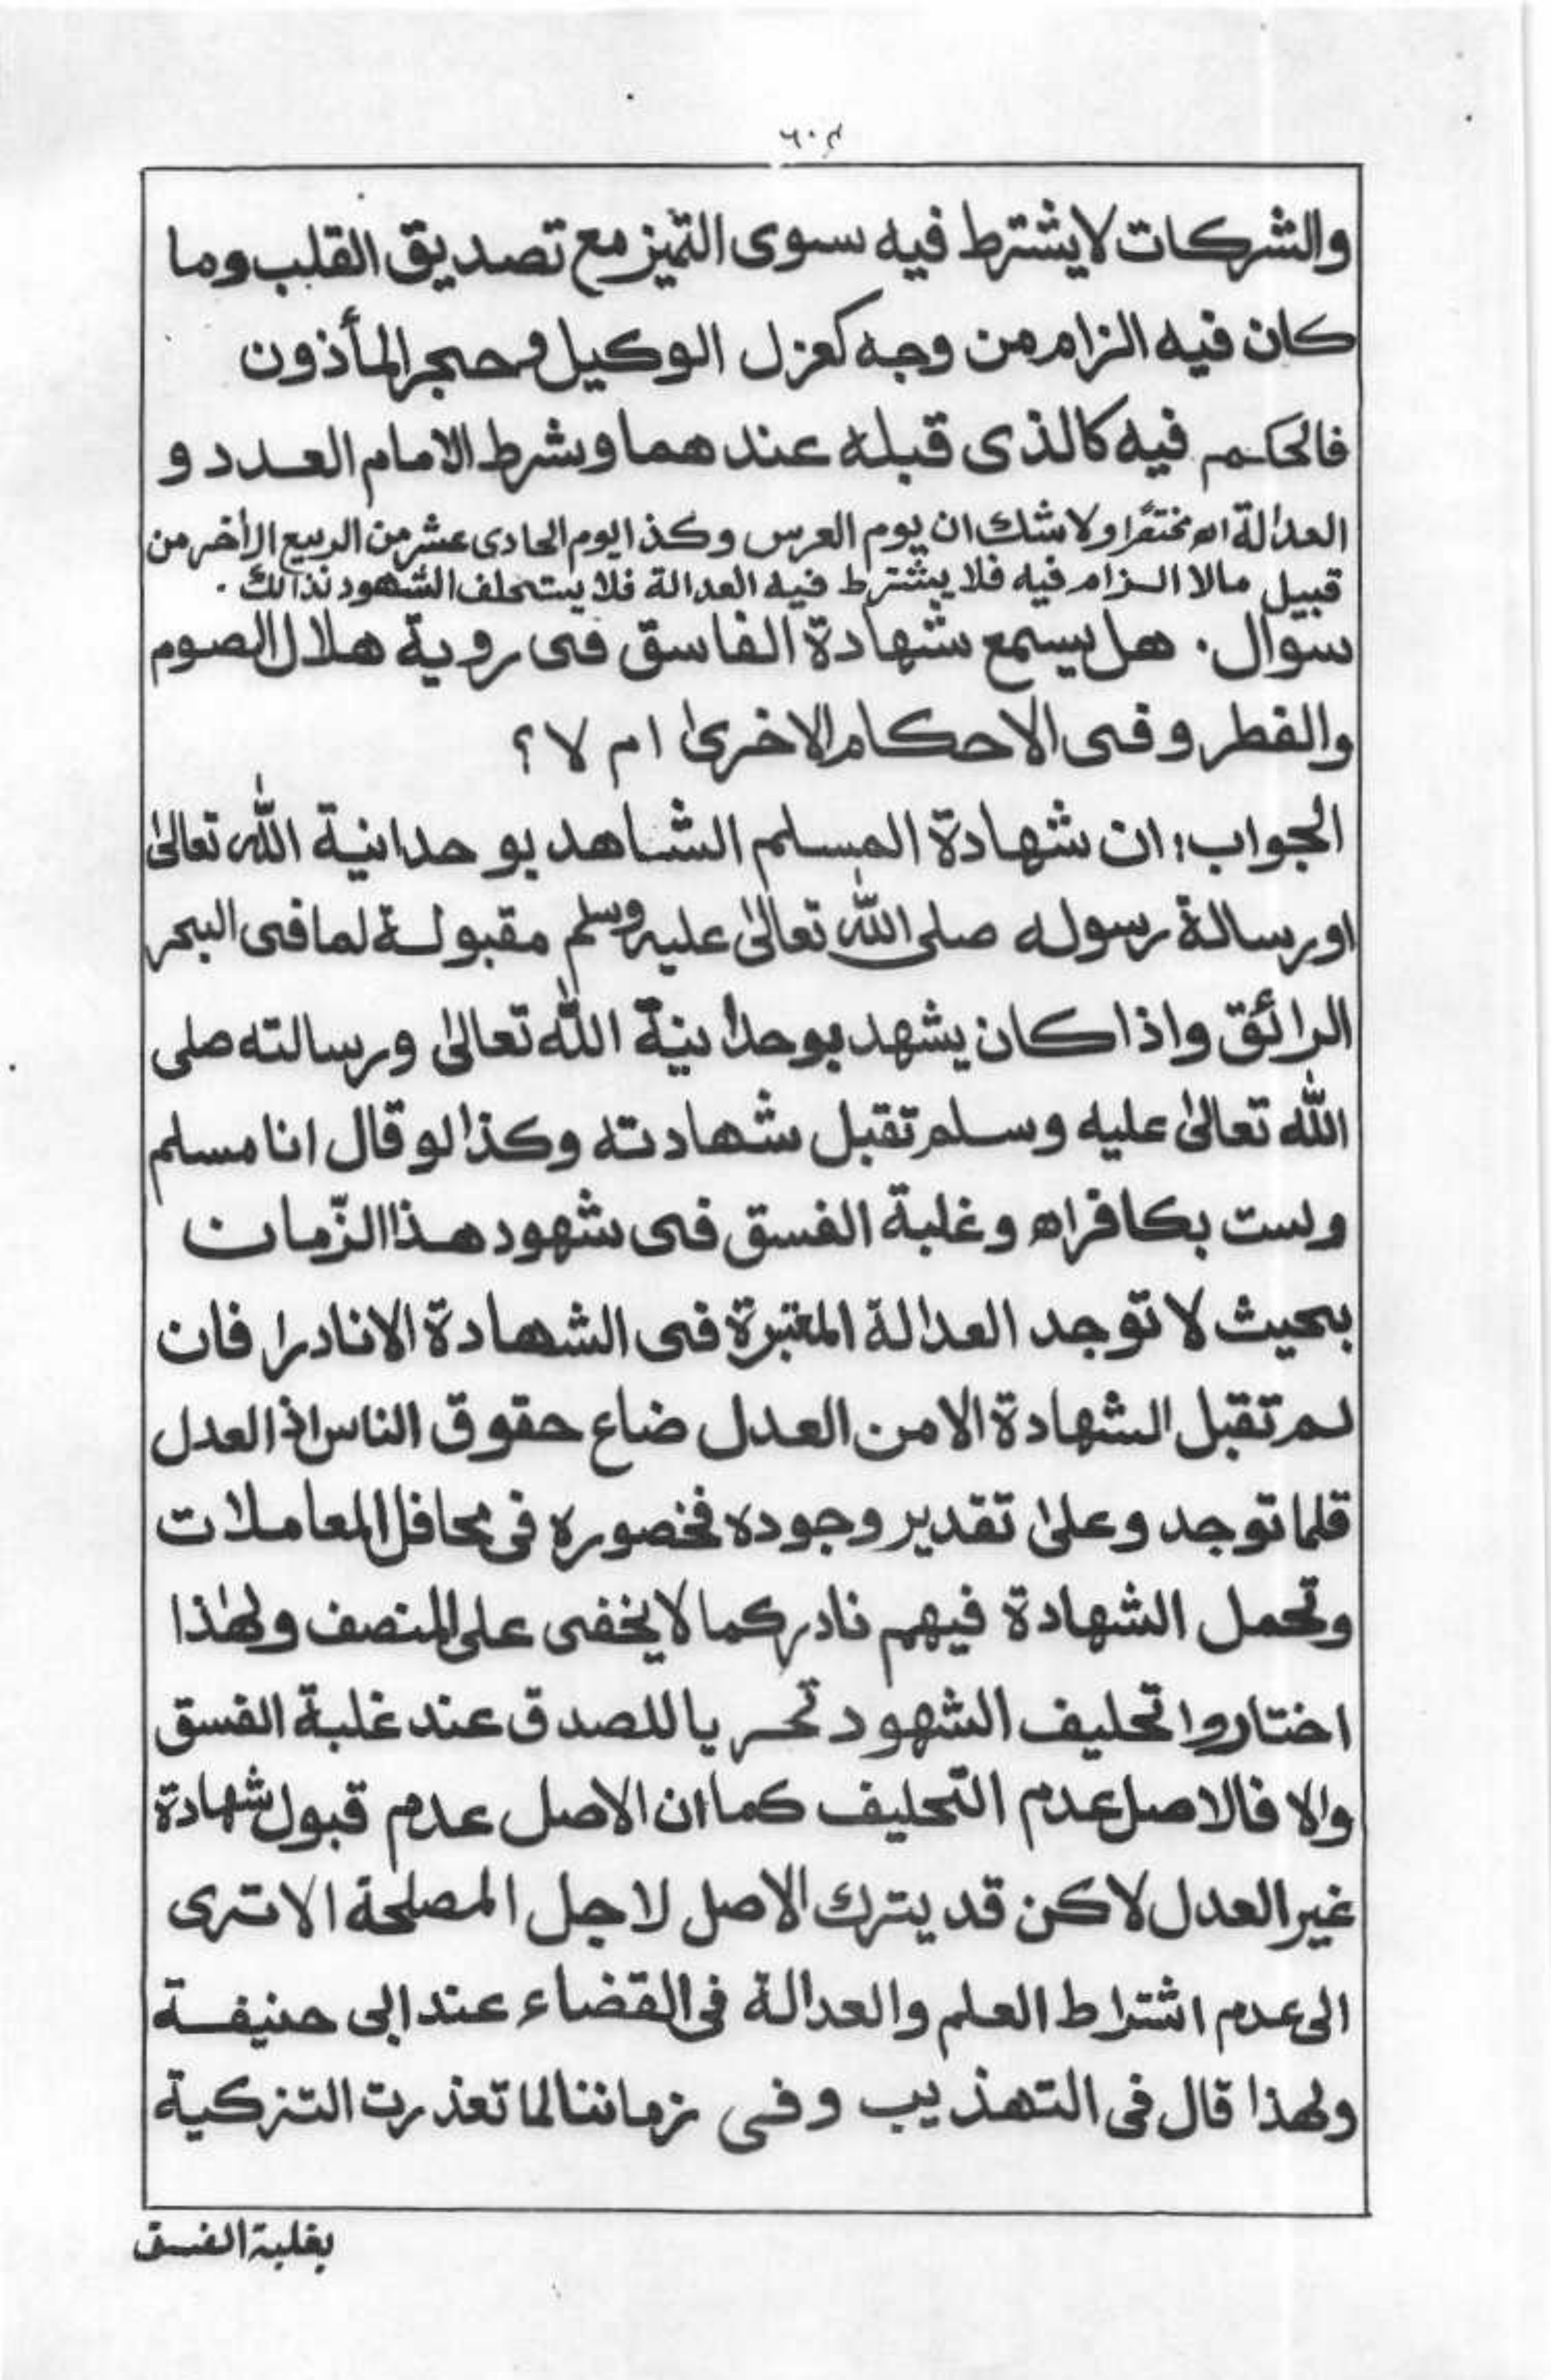 والشركات لا يشترط فيه سوى التميز مع تصديق القلب وما
كان فيه الزام من وجه كعزل الوكيل و حجر المأذون
فالحكم فيه كالذى قبله عند هما وشرط الامام العدد و
العدالة اھ مختصًرا ولا شك ان يوم العرس وكذا يوم الحادى عشر من الربيع الأخر من
قبيل مالا الزام فيه فلا يشترط فيه العدالة فلا يستحلف الشهود نذالك .
سوال . هل يسمع شهادة الفاسق فى روية هلال الصوم
والفطر و فى الاحكام الاخرىٰ ام لا ؟
الجواب : ان شهادة المسلم الشاهد بو حدانية الله تعالىٰ
او رسالة رسوله صلى الله تعالىٰ عليه وسلم مقبولة لما فى البحر
الرائق واذا كان يشهد بوحدانية الله تعالىٰ ورسالته صلى
الله تعالىٰ عليه وسلم تقبل شهادته وكذا لو قال انا مسلم
ولست بكافر اھ وغلبة الفسق فى شهود هذا الزّمان
بحيث لا توجد العدالة المعتبرة فى الشهادة الا نادرا فان
لم تقبل الشهادة الا من العدل ضاع حقوق الناس اذ العدل
قلما توجد وعلىٰ تقدير وجوده فحضوره فى محافل المعاملات
وتحمل الشهادة فيهم نادر كما لا يخفى على المنصف ولهٰذا
اختاروا تحليف الشهود تحريا للصدق عند غلبة الفسق
والا فالاصل عدم التحليف كما ان الاصل عدم قبول شهادة
غير العدل لاكن قد يترك الاصل لاجل المصلحة الا ترى
الى عدم اشتراط العلم والعدالة فى القضاء عند ابى حنيفة
ولهذا قال فى التهذيب وفى زماننا لما تعذرت التزكية
بغلبة الفسق